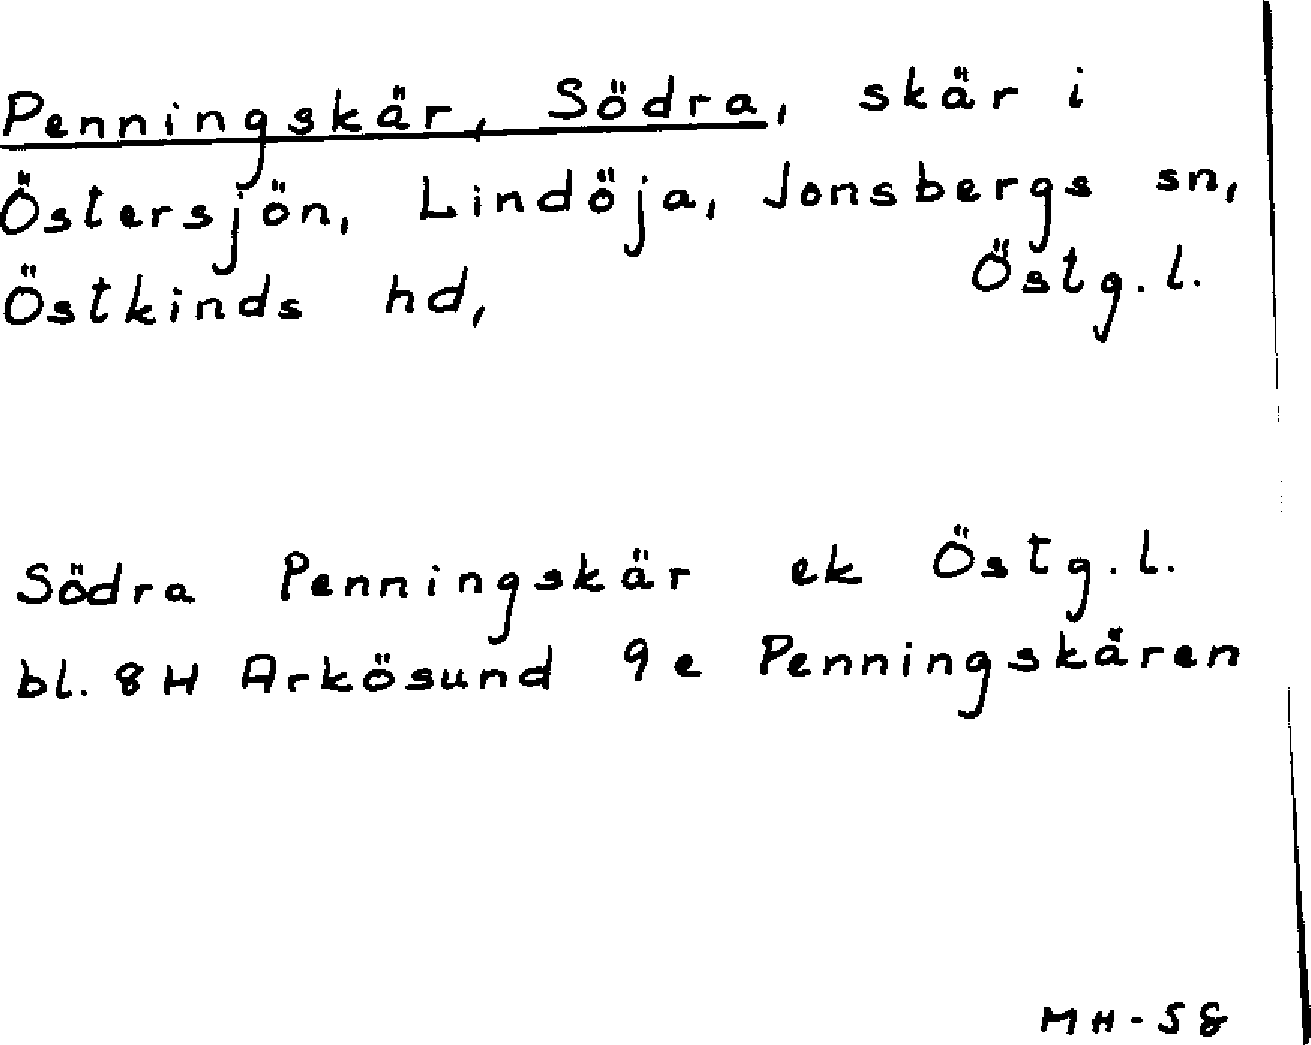 Penningskär, Södra, skär i
Östersjön, Lindöja, Jonsbergs sn,
Östkinds hd, Östg.l.
Södra Penningskär ek Östg.l.
bl. 8H Arkösund 9e Penningskären
MH-58